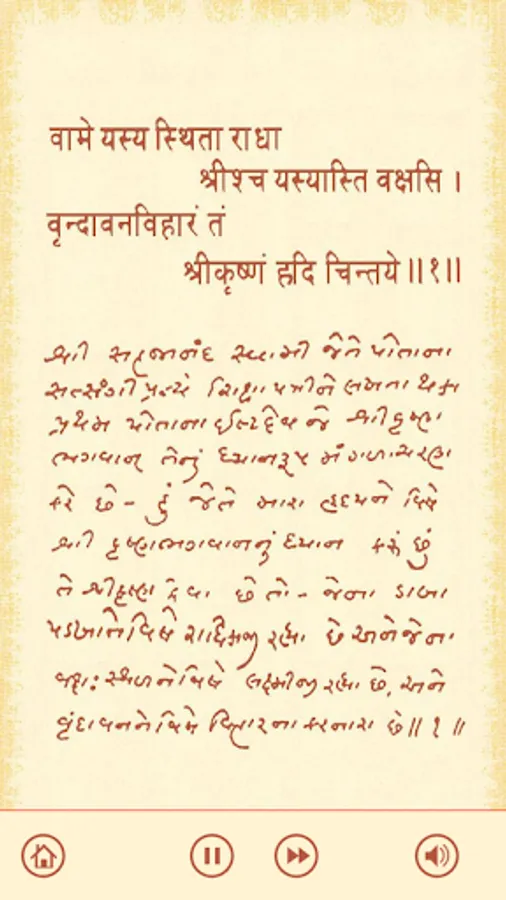 वामे यस्य स्थिता राधा
श्रीश्च यस्यास्ति वक्षसि ।
वृन्दावनविहारं तं
श्रीकृष्णं हृदि चिन्तये॥१॥
શ્રી સહજાનંદ સ્વામી જેતે પોતાના
સત્સંગી પ્રત્યે શિક્ષાપત્રીને લખતા થકા
પ્રથમ પોતાના ઈષ્ટદેવ જે શ્રીકૃષ્ણ
ભગવાન્ તેનું ધ્યાનરૂપ મંગળાચરણ
કરે છે- હું જેતે મારા હૃદયને વિષે
શ્રી કૃષ્ણભગવાનનું ધ્યાન કરું છું
તે શ્રીકૃષ્ણ કેવા છે તો- જેના ડાબા
પડખાને વિષે રાધિકાજી રહ્યાં છે અને જેના
વક્ષઃસ્થળને વિષે લક્ષ્મીજી રહ્યાં છે, અને
વૃંદાવનને વિષે વિહારના કરનારા છે॥ ૧ ॥